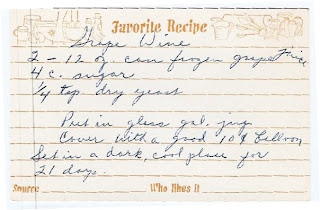 Favorite Recipe
Grape Wine
2 - 12 oz. can frozen grape juice
4 c. sugar
1/4 tsp. dry yeast
Put in glass gal. jug
Cover with a good 10¢ balloon
Set in a dark, cool place for
21 days.
Source Who likes it